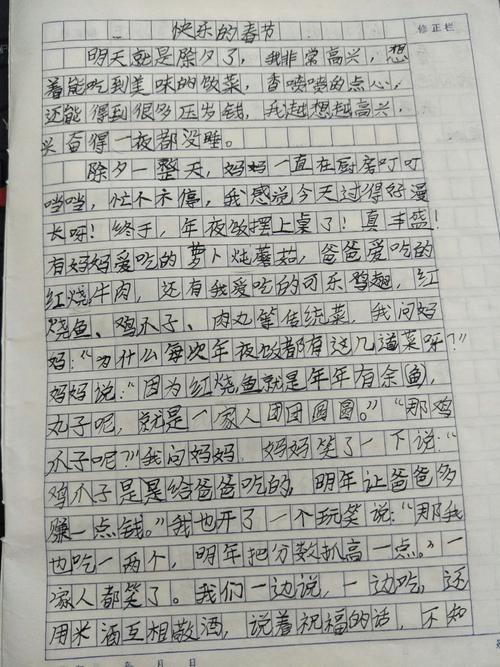 快乐的春节
修正栏
明天就是除夕了，我非常高兴，想
着能吃到美味的饭菜，香喷喷的点心，
还能得到很多压岁钱，我越想越高兴，
兴奋得一夜都没睡。
除夕一整天，妈妈一直在厨房叮叮
当当，忙个不停，我感觉今天过得好漫
长呀！终于，年夜饭摆上桌了！真丰盛！
有妈妈爱吃的萝卜炖蘑菇，爸爸爱吃的
红烧牛肉，还有我爱吃的可乐鸡翅，红
烧鱼、鸡爪子、肉丸等传统菜，我问妈
妈：“为什么每次年夜饭都有这几道菜呀？”
妈妈说：“因为红烧鱼就是年年有余（鱼），
丸子呢，就是一家人团团圆圆。”“那鸡
爪子呢？”我问妈妈，妈妈笑了一下说：“
鸡爪子是是给爸爸吃的，明年让爸爸多
赚一点钱。”我也开了一个玩笑说：“那我
也吃一两个，明年把分数抓高一点。”一
家人都笑了。我们一边说，一边吃，还
用米酒互相敬酒，说着祝福的话，不知
年 月 日